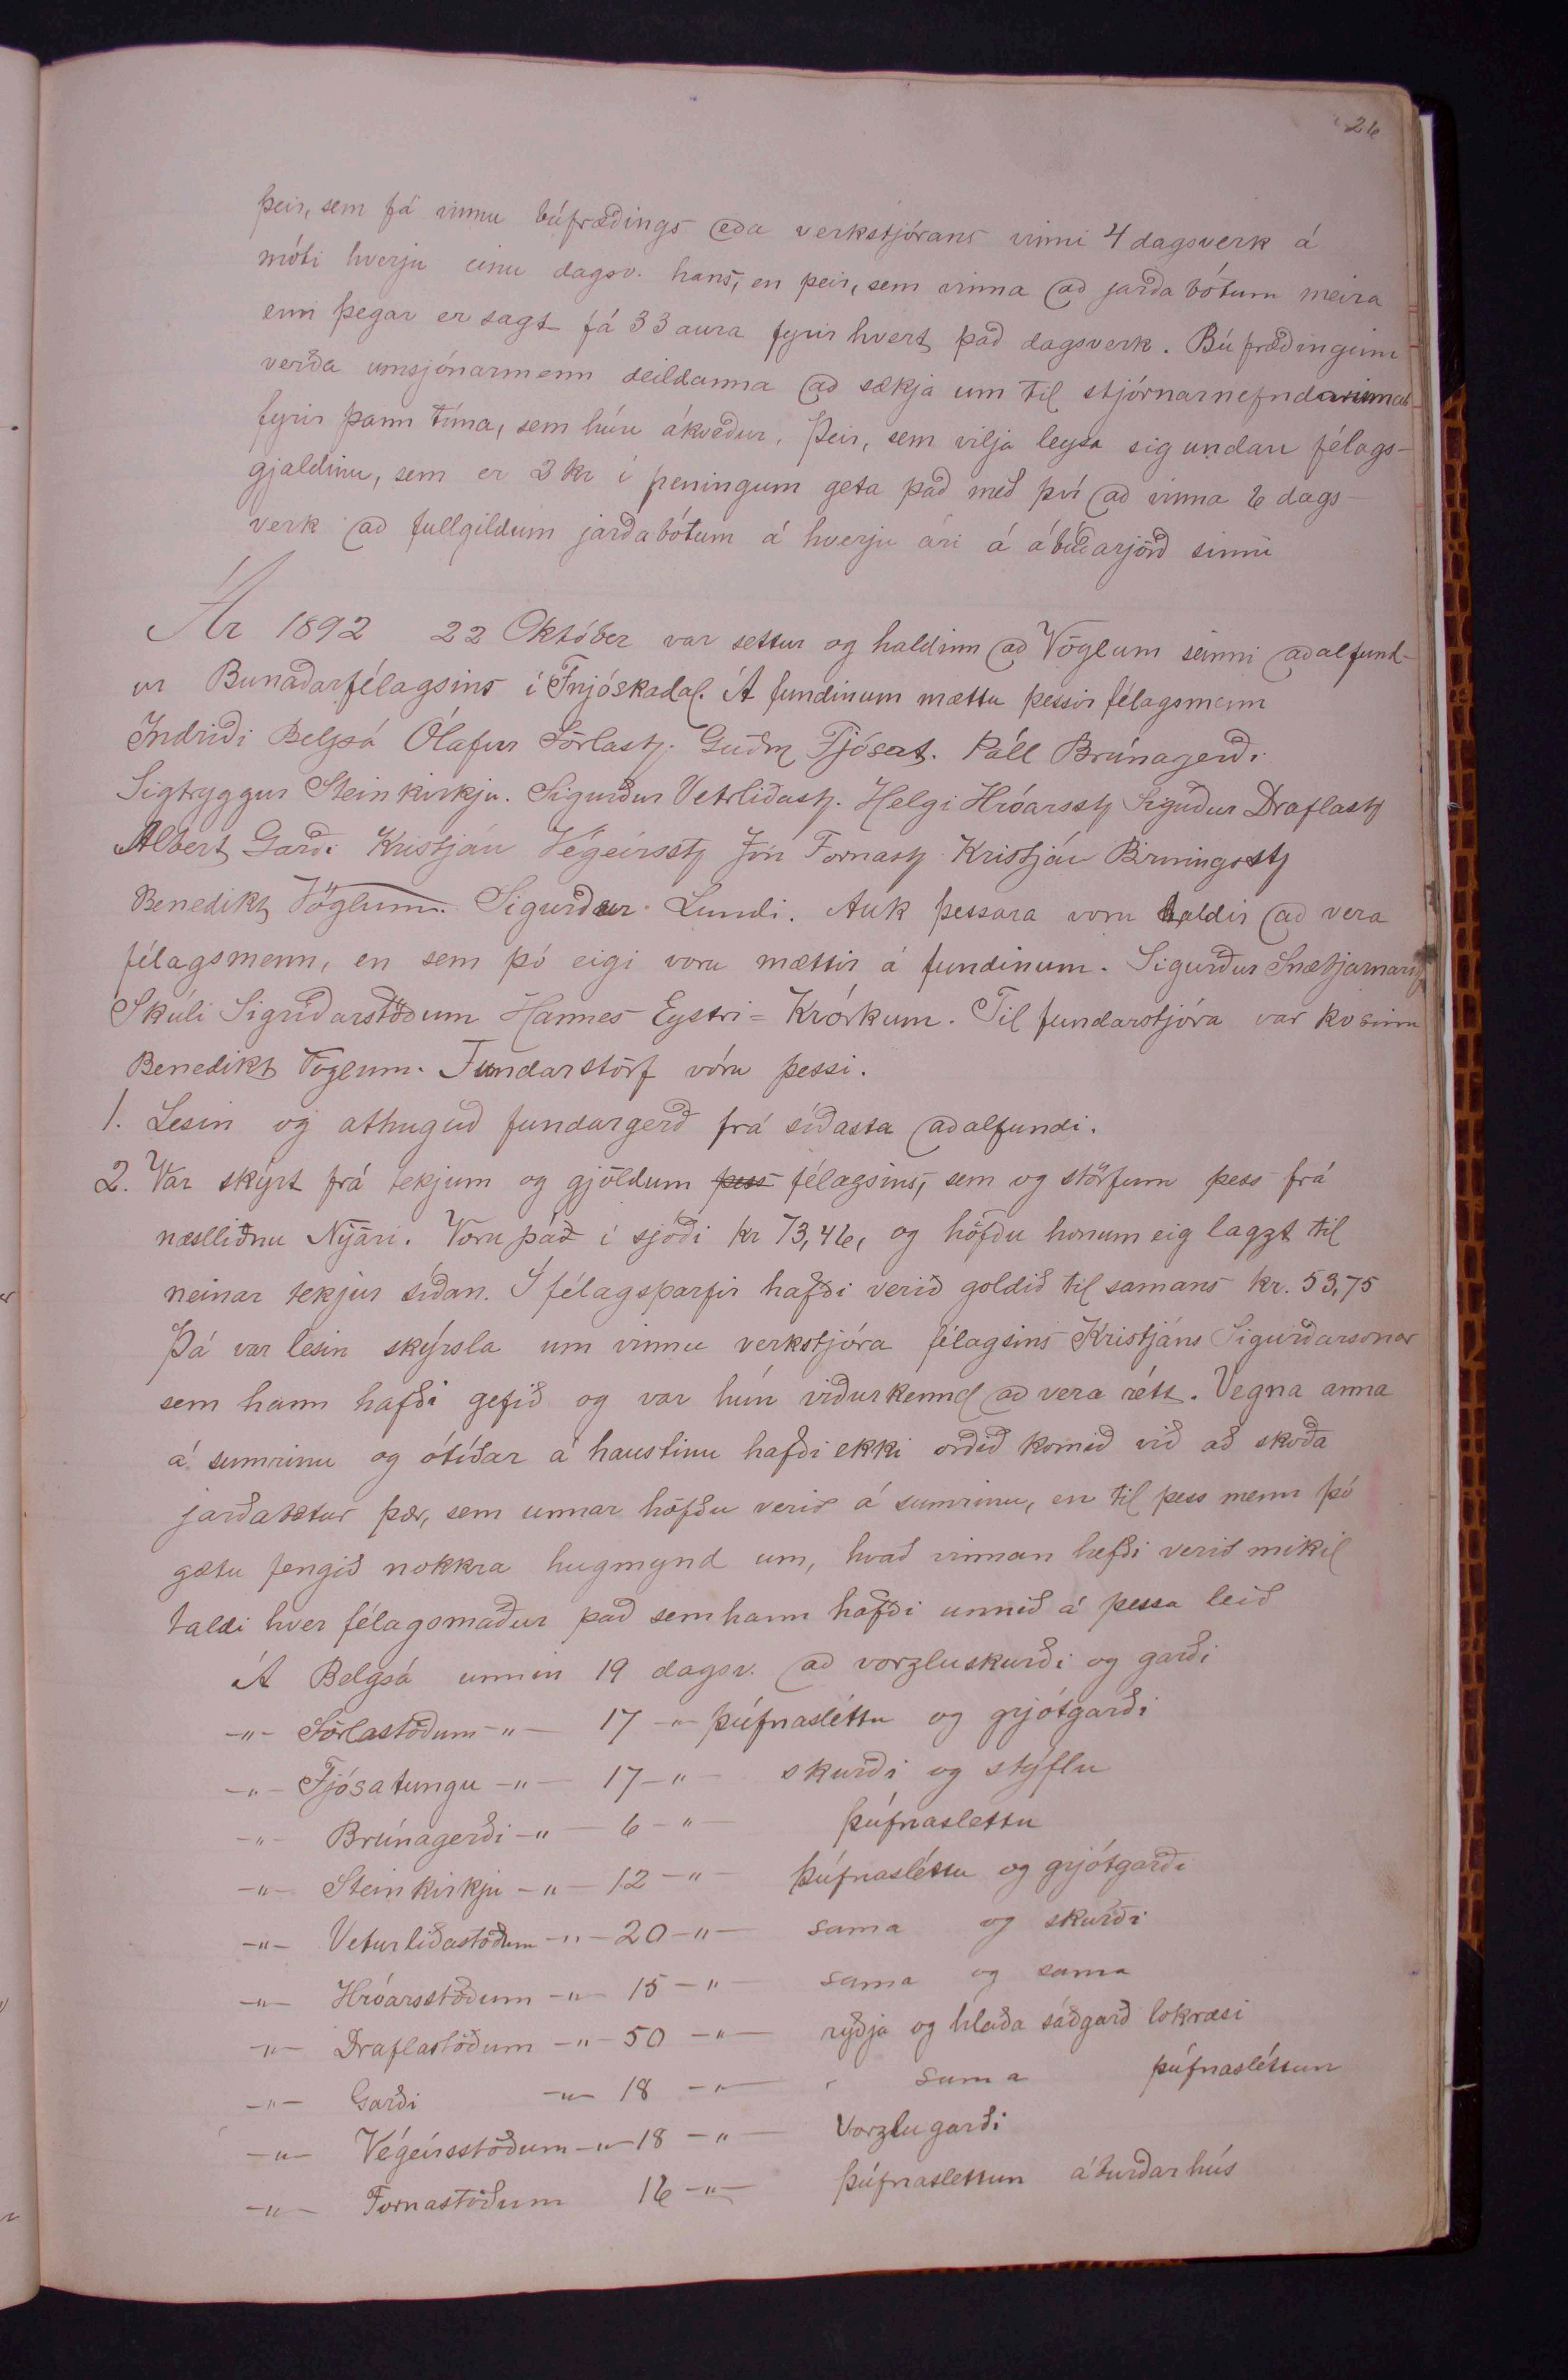 26
þeir, sem fá vinnu búfræðings eða verkstjórans vinni 4 dagsverk á
móti hverju einu dagsv. hans, en þeir, sem vinna að jarðabótum meira
enn þegar er sagt fá 33 aura fyrir hvert það dagsverk. Búfræðinginn
verða umsjónarmenn deildanna að sækja um til stjórnarnefndarinnar
fyrir þann tíma, sem hún ákveður. Þeir, sem vilja leysa sig undan félags-
gjaldinu, sem er 2 kr í peningum geta það með því að vinna 6 dags-
verk að fullgildum jarðabótum á hverju ári á ábúðarjörð sinni
Ár 1892 22 Október var settur og haldinn að Vöglum seinni aðalfund-
ur Bunaðarfélagsins í Fnjóskadal. Á fundinum mættu þessir félagsmenn
Indriði Belgsá Ólafur Sörlast. Guðm Fjósat. Páll Brúnagerði
Sigtryggur Steinkirkju. Sigurður Vetrliðast. Helgi Hróarsst Sigurður Draflast
Albert Garði Kristján Végeirsst Jón Fornast Kristján Birningsst
Benedikt Vöglum. Sigurður Lundi. Auk þessara voru haldir að vera
félagsmenn, en sem þó eigi voru mættir á fundinum. Sigurður Snæbjarnarst
Skúli Sigríðarstöðum Hannes Eystri-Krókum. Til fundarstjóra var kosinn
Benedikt Vöglum. Fundarstörf vóru þessi.
1. Lesin og athuguð fundargerð frá síðasta aðalfundi.
2. Var skýrt frá tekjum og gjöldum þess félagsins, sem og störfum þess frá
næstliðnu Nýári. Voru það í sjóði kr 73,46, og höfðu honum eig lagzt til
neinar tekjur síðan. Í félagsþarfir hafði verið goldið til samans kr. 53,75
Þá var lesin skýrsla um vinnu verkstjóra félagsins Kristjáns Sigurðarsonar
sem hann hafði gefið og var hún viðurkennd að vera rétt. Vegna anna
á sumrinu og ótíðar á haustinu hafði ekki orðið komið við að skoða
jarðabætur þær, sem unnar höfðu verið á sumrinu, en til þess menn þó
gætu fengið nokkra hugmynd um, hvað vinnan hefði verið mikil
taldi hver félagsmaður það sem hann hafði unnið á þessa leið
Á Belgsá unnin 19 dagsv. að vorzluskurði og garði
-"- Sörlastöðum -"- 17 -"- þúfnasléttu og grjótgarði
-"- Fjósatungu -"- 17 -"- skurði og stýflu
-"- Brúnagerði -"- 6 -"- þúfnaslettu
-"- Steinkirkju -"- 12 -"- þúfnasléttu og grjótgarði
-"- Veturliðastöðum -"- 20 -"- sama og skurði
-"- Hróarsstöðum -"- 15 -"- sama og sama
-"- Draflastöðum -"- 50 -"- ryðja og hlaða sáðgarð lokræsi
-"- Garði -"- 18 -"- " sama þúfnasléttun
-"- Végeirsstöðum -"- 18 -"- Vorzlugarði
-"- Fornastöðum 16 -"- þúfnaslettun áburðarhús